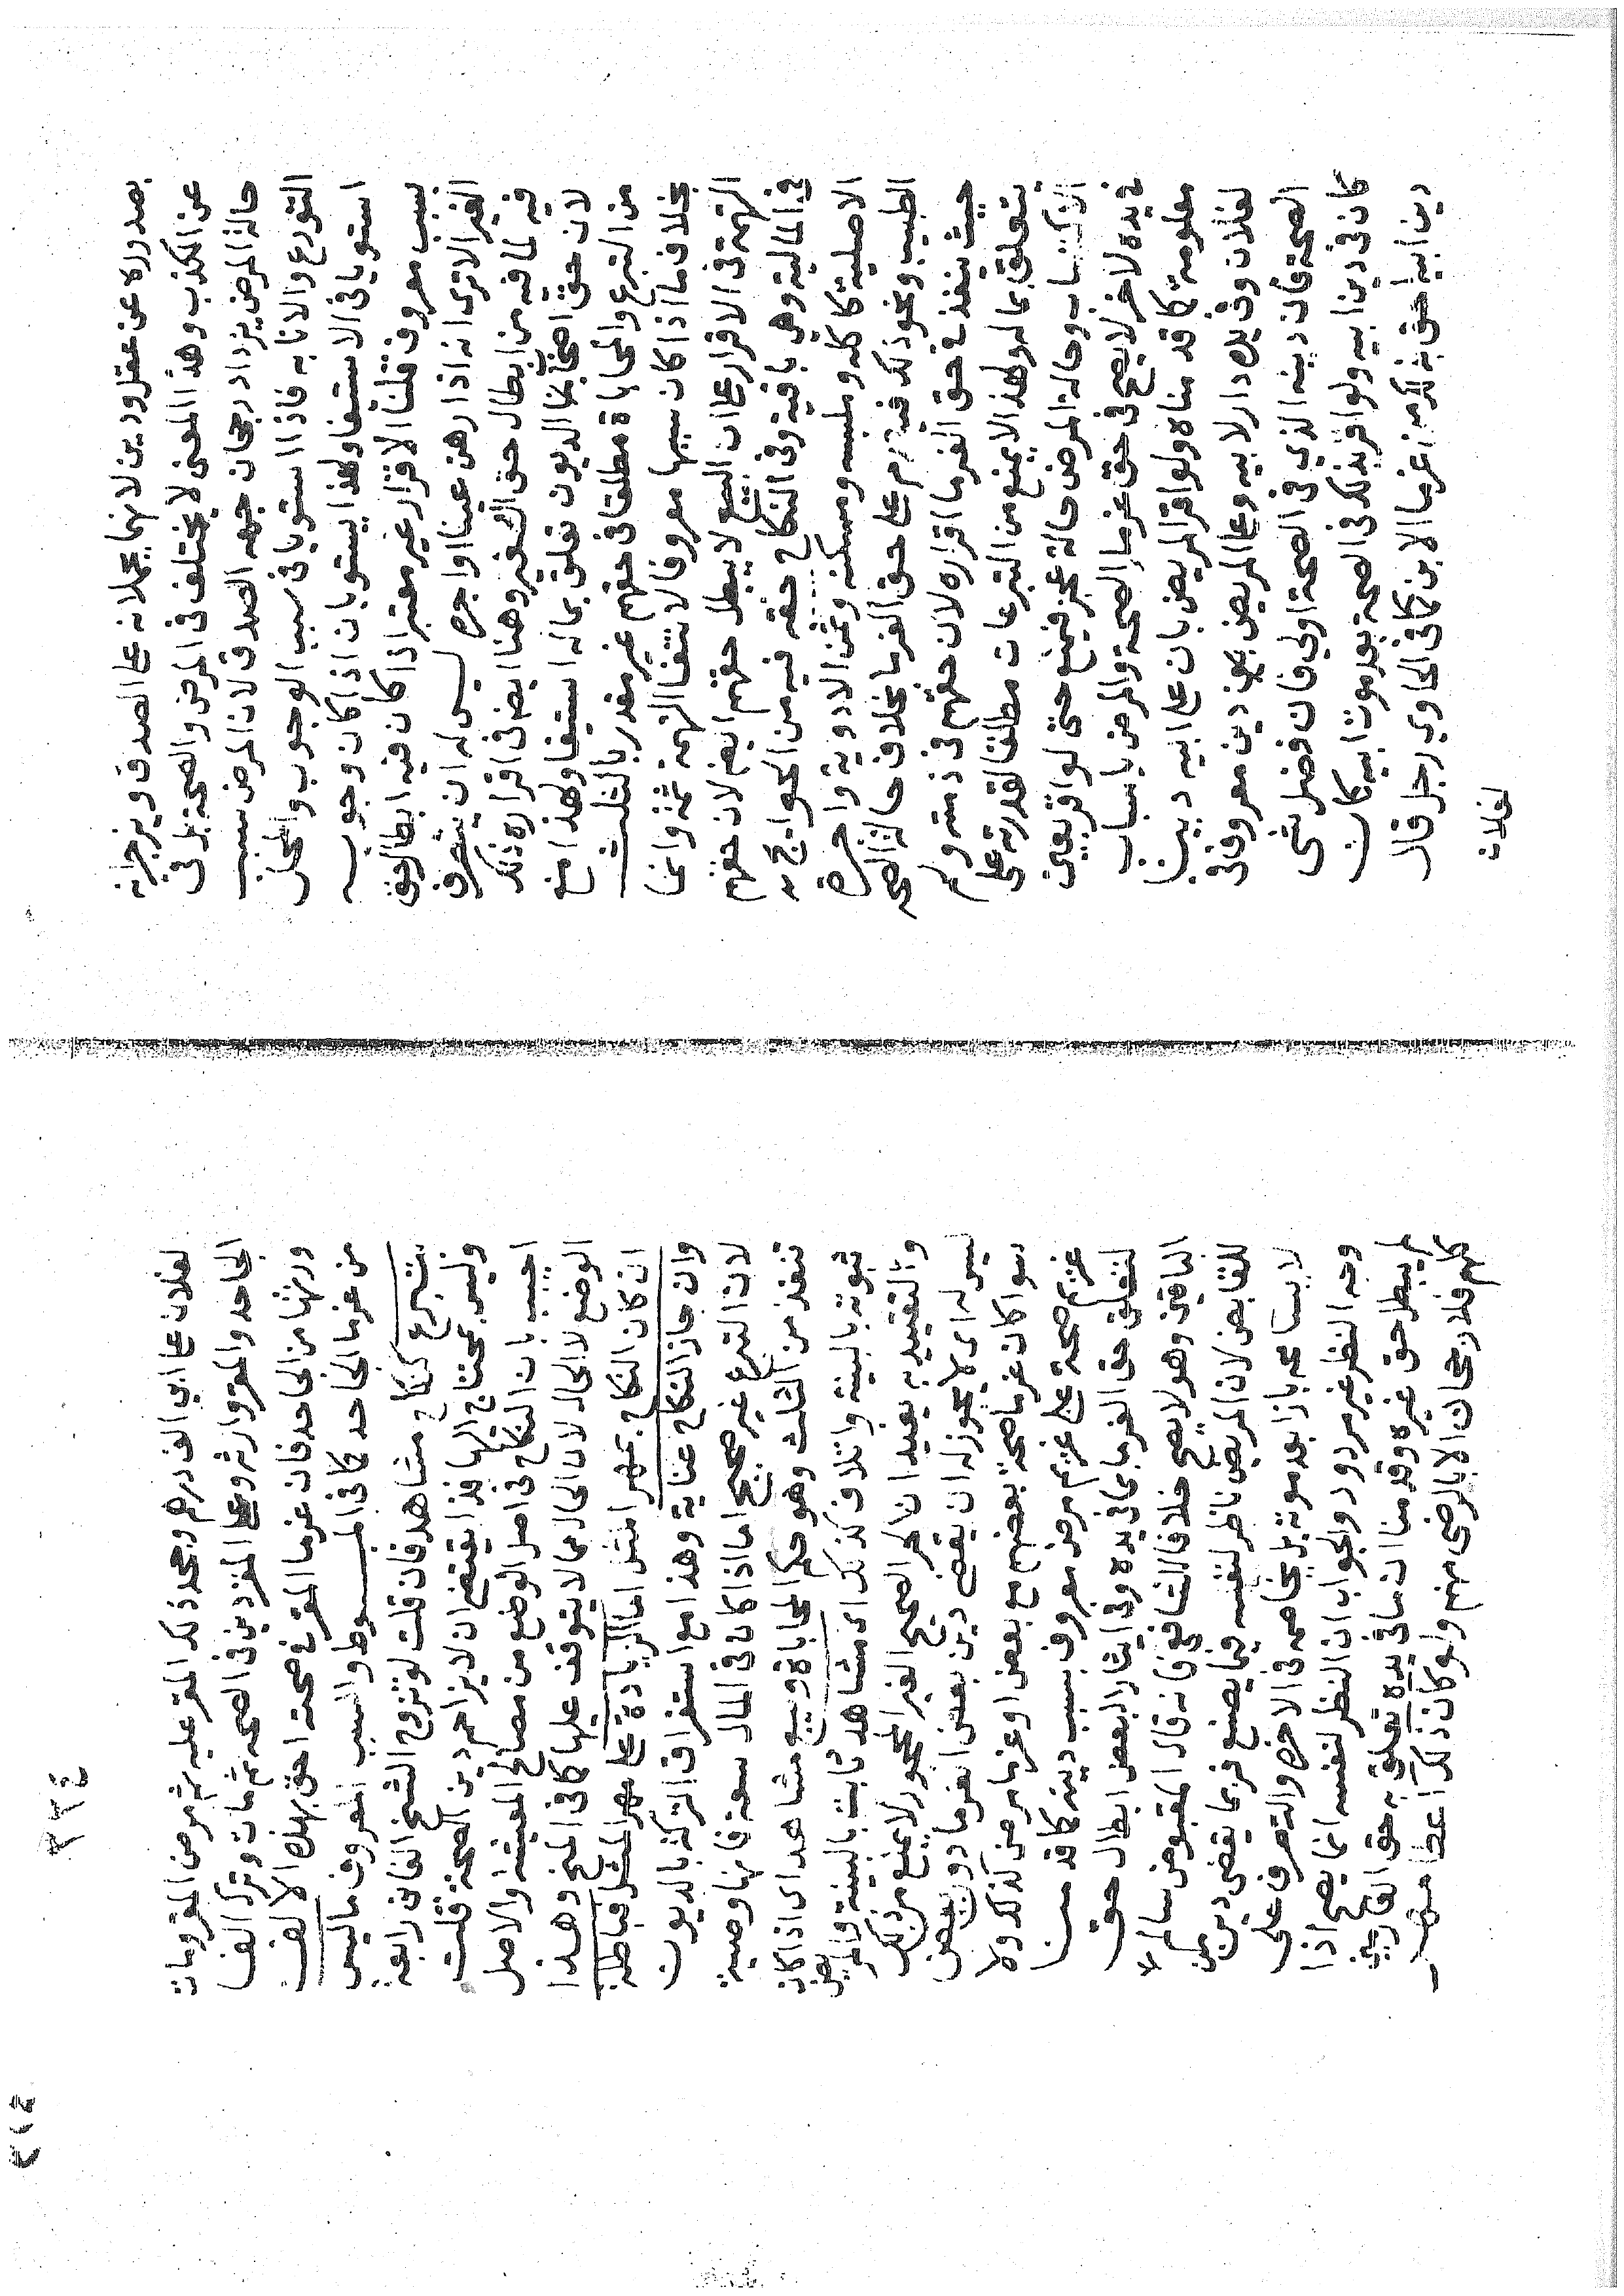 بصدوره عن عقل ودين لانهما يحملانه على الصدق ويزجرانه
عن الكذب وهذا المعنى لا يختلف في المرض والصحة بل في
حالة المرض يزداد رجحان جهه الصدق لان المرض سبب
التورع والانابه فاذا استويا في سبب الوجوب والمحل
استويا في الاستيفا ولهذا يستويان اذا كان وجوبه
بسبب معروف قلنا الاقرار غير معتبر اذا كان فيه ابطال حق
الغير الا ترى انه اذا رهن عينا او اجره ليس له ان يتصرف
فيه لما فيه من ابطال حق الغير وهنا ايضا في اقراره ذلك
لان حق اصحابنا الديون تعلق بماله استيفا ولهذا منع
من التبرع والمحاباة مطلقا في حقهم غير مقدر بالثلث
بخلاف ما اذا كان سببها معروفا لانتفا التهمة ثمة وانما
التهمة في الاقرار على ان البيع لا يبطل حقهم ايضا لان حقهم
في المالية وهي باقية وفي النكاح حقه فيه من الحوايج
الاصلية كاكله وملبسه ومسكنه وثمن الادوية واجرة
الطبيب ونحو ذلك فيقدم على حق الغرما بخلاف حالة الصحه
حيث ينفذ في حق الغرما اقراره لان حقهم في ذمته ولم
يتعلق بماله ولهذا لا يمنع من التبرعات مطلقا لقدرته على
الاكتساب وحالة المرض حالة عجز فيمنع حتى لو اقر بعين
في يده لاخر لا يصح في حق غرما الصحة والمرض باسباب
معلومة كما قدمناه ولو اقر المريض بان على ابيه دينا
لفلان وفي يده دار لابيه وعلى المريض دين معروف في
الصحة فان دينه الذي في الصحة اولى فان فضل شي
كان في دين ابيه ولو اقر بذلك في الصحة بعد موت ابيه كان
دين ابيه احق بذلك من غرما الابن كما في الحاوي رجل قال
لفلان
٢٢٤
٢١٤
لفلان على ابي الف درهم وجحد ذلك المقر عليه ثم مرض المقر ومات
الجاحد والمقر وارثه وعلى المقر دين في الصحه ثم مات وترك الفا
ورثها من الجاحد فان غرما المقر في صحته احق بهذه الالف
من غرما الجاحد كما في المبسوط والسبب المعروف ما ليس
بتبرع كنكاح مشاهد فان قلت لو تزوج الشيخ الفاني رابعة
وليس بمحتاج اليها فذا يقتضي ان لا يزاحم دين الصحة قلت
اجيب بان النكاح في اصل الوضع من مصالح المعيشة والاصل
الوضع لا الحال لان الحال مما لا يتوقف عليها كما في المنح وهذا
ان كان النكاح بمهر المثل اما الزيادة على مهر المثل فباطلة
وان جاز النكاح عناية وهذا مع استغراق التركة بالديون
لان التبرع غير صحيح اما اذا كان في المال سعة فانها وصية
تنفذ من الثلث وهو حكم المحاباة وبيع مشاهد اي اذا كان
ثبوته بالبينة واتلاف كذلك اي مشاهد ثابت بالبينة والمريض
والتقييد به يفيد ان الحر الصحيح الغير المحجور لا يمنع من ذلك
ليس له اي لا يجوز له ان يقضي دين بعض الغرما دون بعض
سوا كان غرما صحة بعضهم مع بعض او غرما مرض كذلك ولا
غريم صحة على غريم مرض معروف بسبب دينه كما قدمنا
لتعلق حق الغرما بما في يده وفي ايثار البعض ابطال حق
الباقين وهو لا يصح خلافا للشافعي فانه قال المقبوض سالم
للقابض لان المريض ناظر لنفسه فيما يصنع فربما يقضي دين من
لا يسامحه بازا بعد موته بل يخاصمه في الاخره والتصرف على
وجه النظر غير مردود والجواب ان النظر لنفسه انما يصح اذا
لم يبطل حق غيره وقد منا ان ما في يده تعلق به حق الغا
كلهم فلا رجحان الا بالرضى منهم ولو كان ذلك اعطا مهر